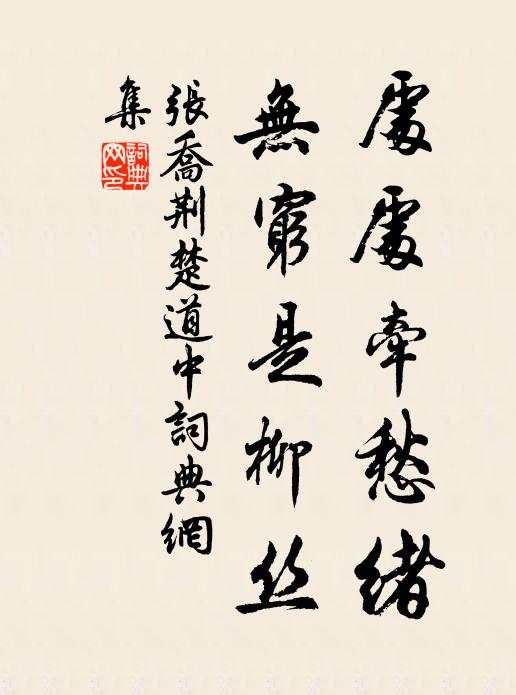 處處牽愁緒
無窮是柳丝
張喬荆楚道中詞典網
集
詞典
网印